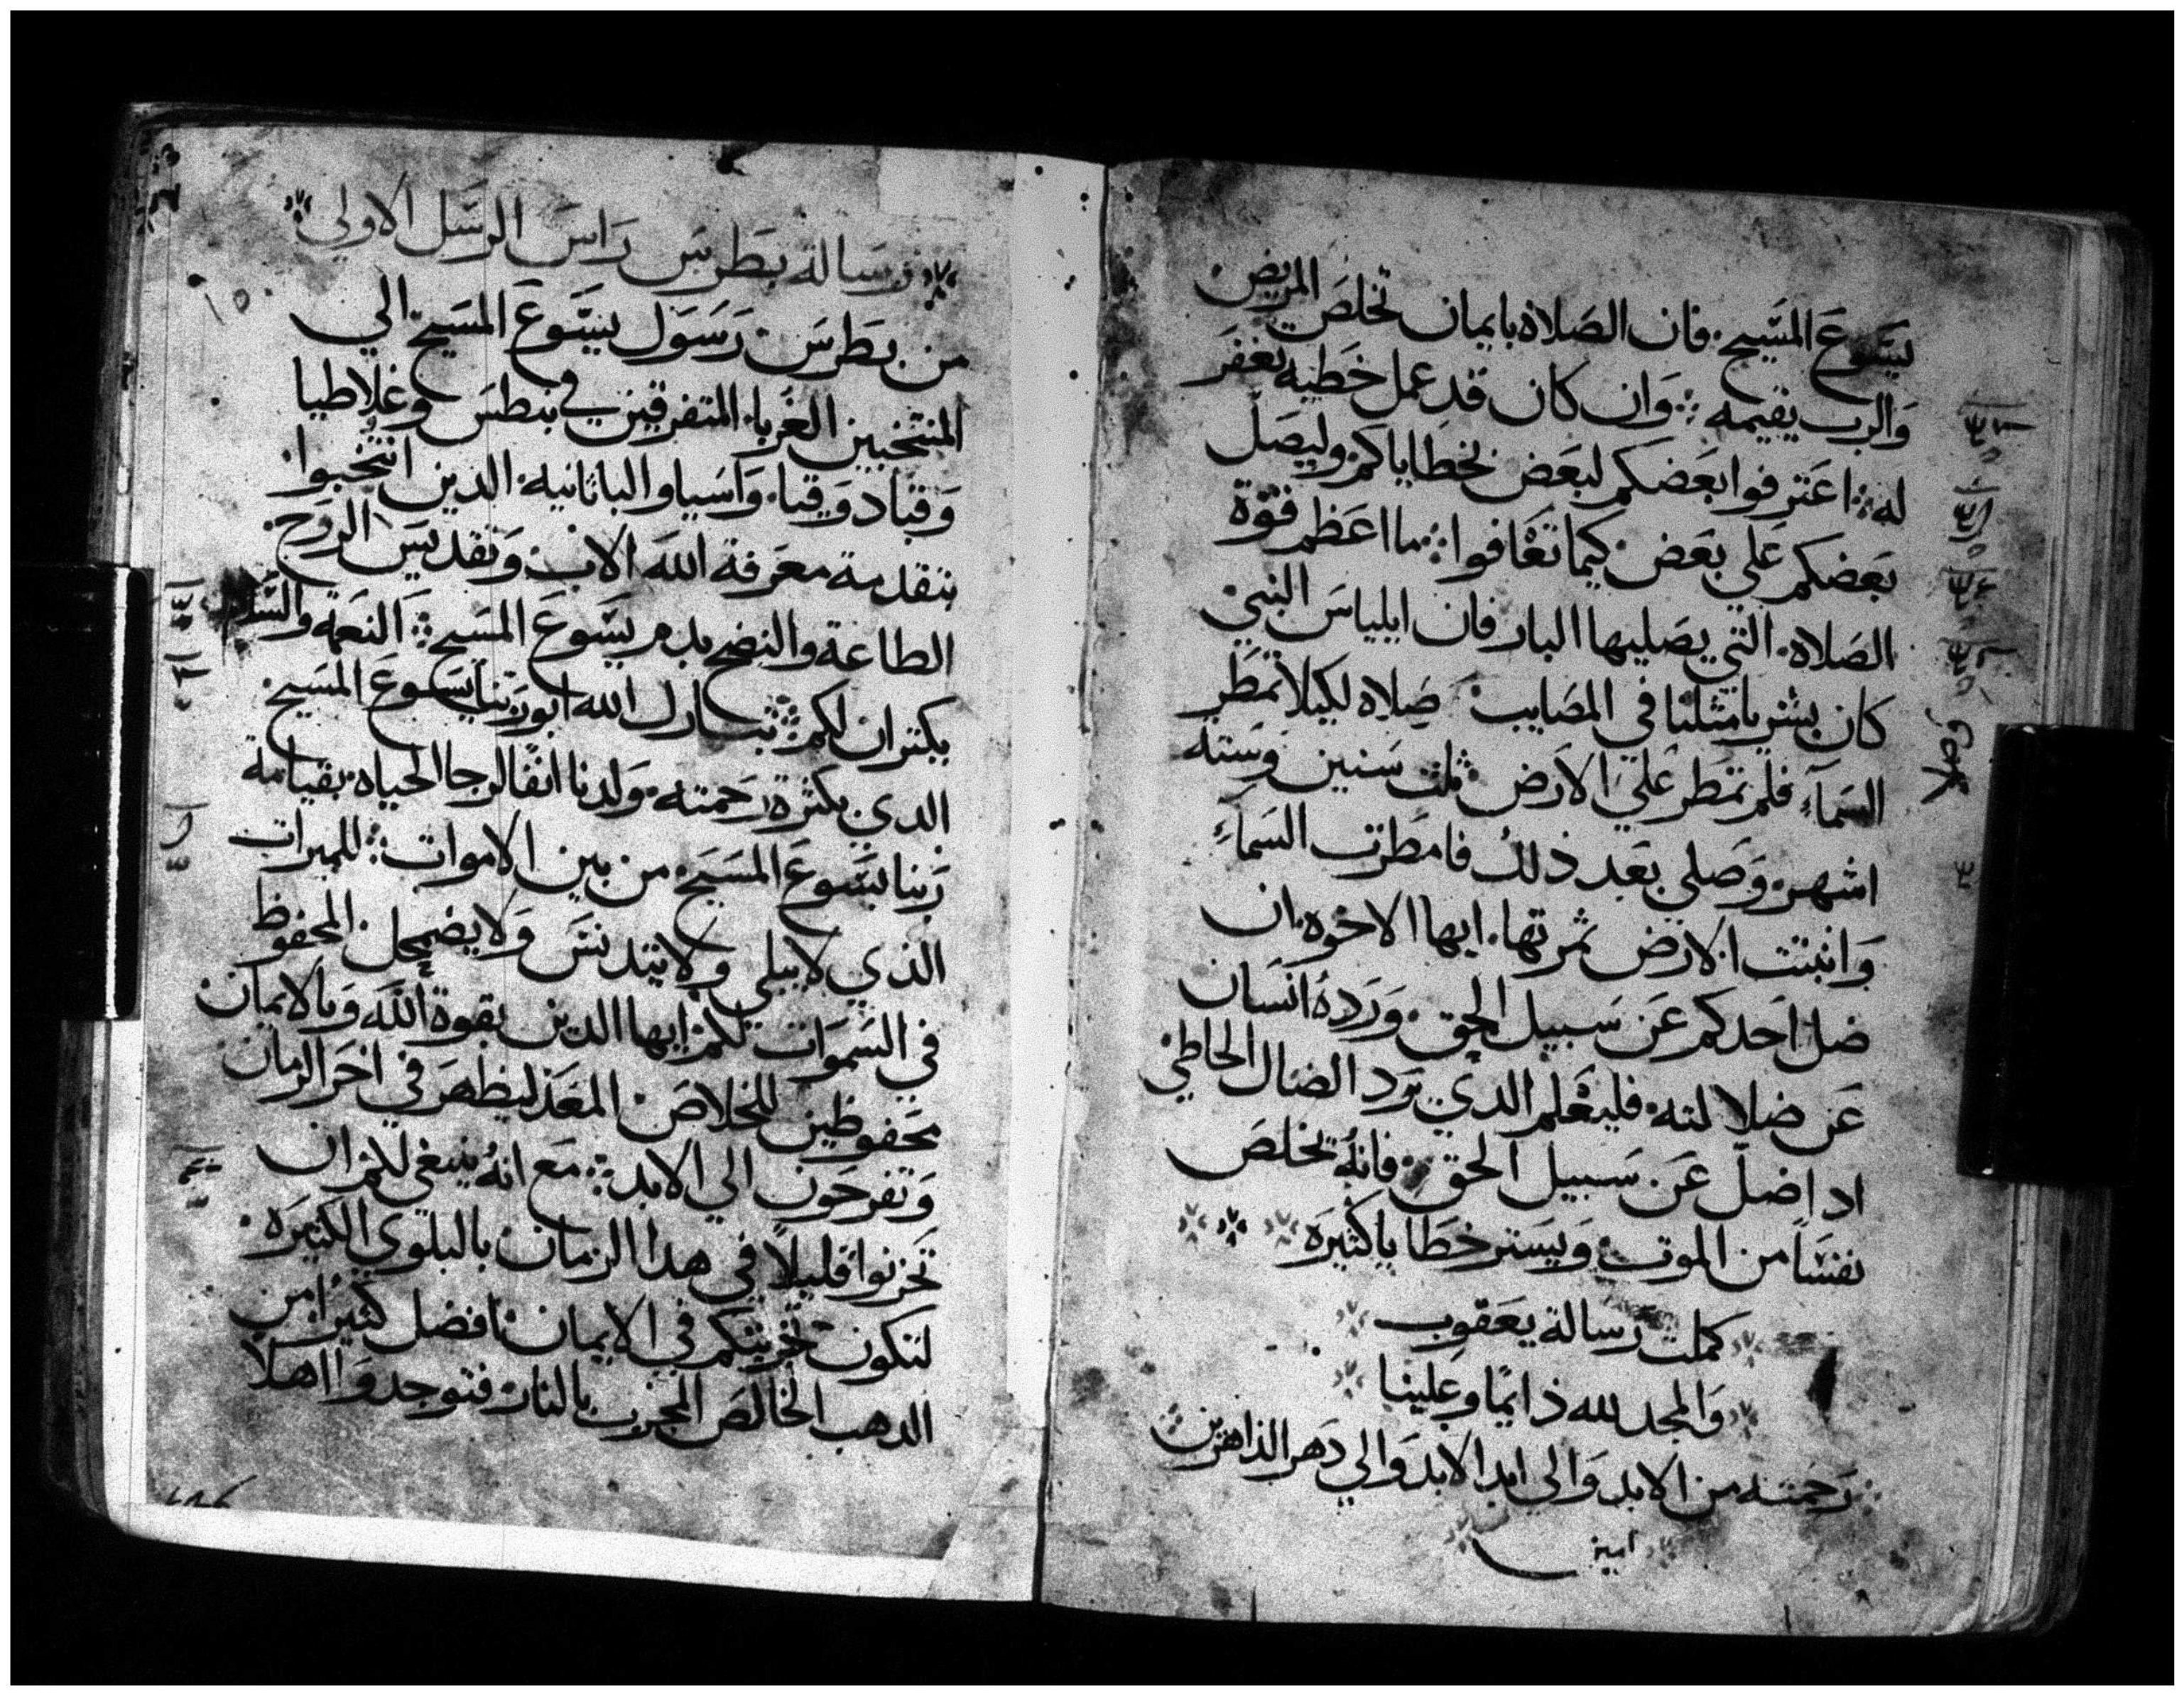 يسَّوعَ المسَّيح. فان الصَلاه بايمان تخلصَ المريض
وَالرب يقيمه ؛ وَان كان قد عمل خطيه تغفرَ
له ؛ اعترفوا بعَضكم لبعَض بخطاياكم وليصَلّ
بعَضكم عَلي بعَض. كيما تعَافوا ؛ ما اعَظم قوّة
الصَلاه. التي يصَليها البار فان ايلياسَ النبي
كان بشريا مثلنا في المصَايب. صَلاه لكيلا تمطَر
السَمآء فلم تمطر عَلي الارَض ثلث سَنين وَسَته
اشهر. وَصَلي بعَد ذلك فامطَرت السَمآء
وَانبتت الارَض ثمرتها. ايها الاخوه. ان
ضل احَدكم عَن سَبيل الحق. وَردهُ انسَان
عَن ضلالته. فليعَلم الدي يرَد الضال الخاطي
ادا ضلّ عَن سَبيل الحق. فانهُ يخلصَ
نفسَاً من الموت. وَيسَتر خطَايا كثيرَه
كملت رسَالة يعَقوب
وَالمجد لله دَايمًا وعَلينا
رَحمته من الابد وَالي ابد الابد وَالي دَهر الداهرَين
امين
رسَالة بطَرسَ رَاسَ الرسَل الاولي
١٥٠
من بطَرسَ. رَسَوَل يسَّوعَ المسَيح الي
المنتخبين الغرَباء المتفرقين في بنطسَ وغلاطيا
وَقبادوَقيا. وَاسَيا والباثانيه. الدين انتخبوا.
بتقدمة معَرفة الله الاب. وَتقديسَ الروَح.
الطاعَة والنضح بدم يسَّوعَ المسَيح ؛ النعَمة والسَّلام
يكتران لكم ؛ تبارك الله ابو رَبنا يسَوعَ المسَيح
الدي بكترة رَحمته. وَلدنا انفًا لرجا الحياه. بقيامة
رَبنا يسَّوعَ المسَيح. من بين الاموات ؛ للميراث
الذي لا يبلي ولا يتدنسَ وَلا يضمحل. المحفوظ
في السَموَات لكم. ايها الدين بقوة اللّه وَبالايمان
محَفوظين للخلاصَ. المعَد ليظهرَ في اخرَ الزمان
وَتفرحَون الي الابد ؛ مَع انهُ ينبغي لكم ان
تحَزنوا قليلاً في هدا الزمان بالبلوَي الكثيرَه.
لتكون تجَربتكم في الايمان. افضل كثيرًا من
الدهب الخالصَ المجرب بالنار. فتوجدوَا اهلاً